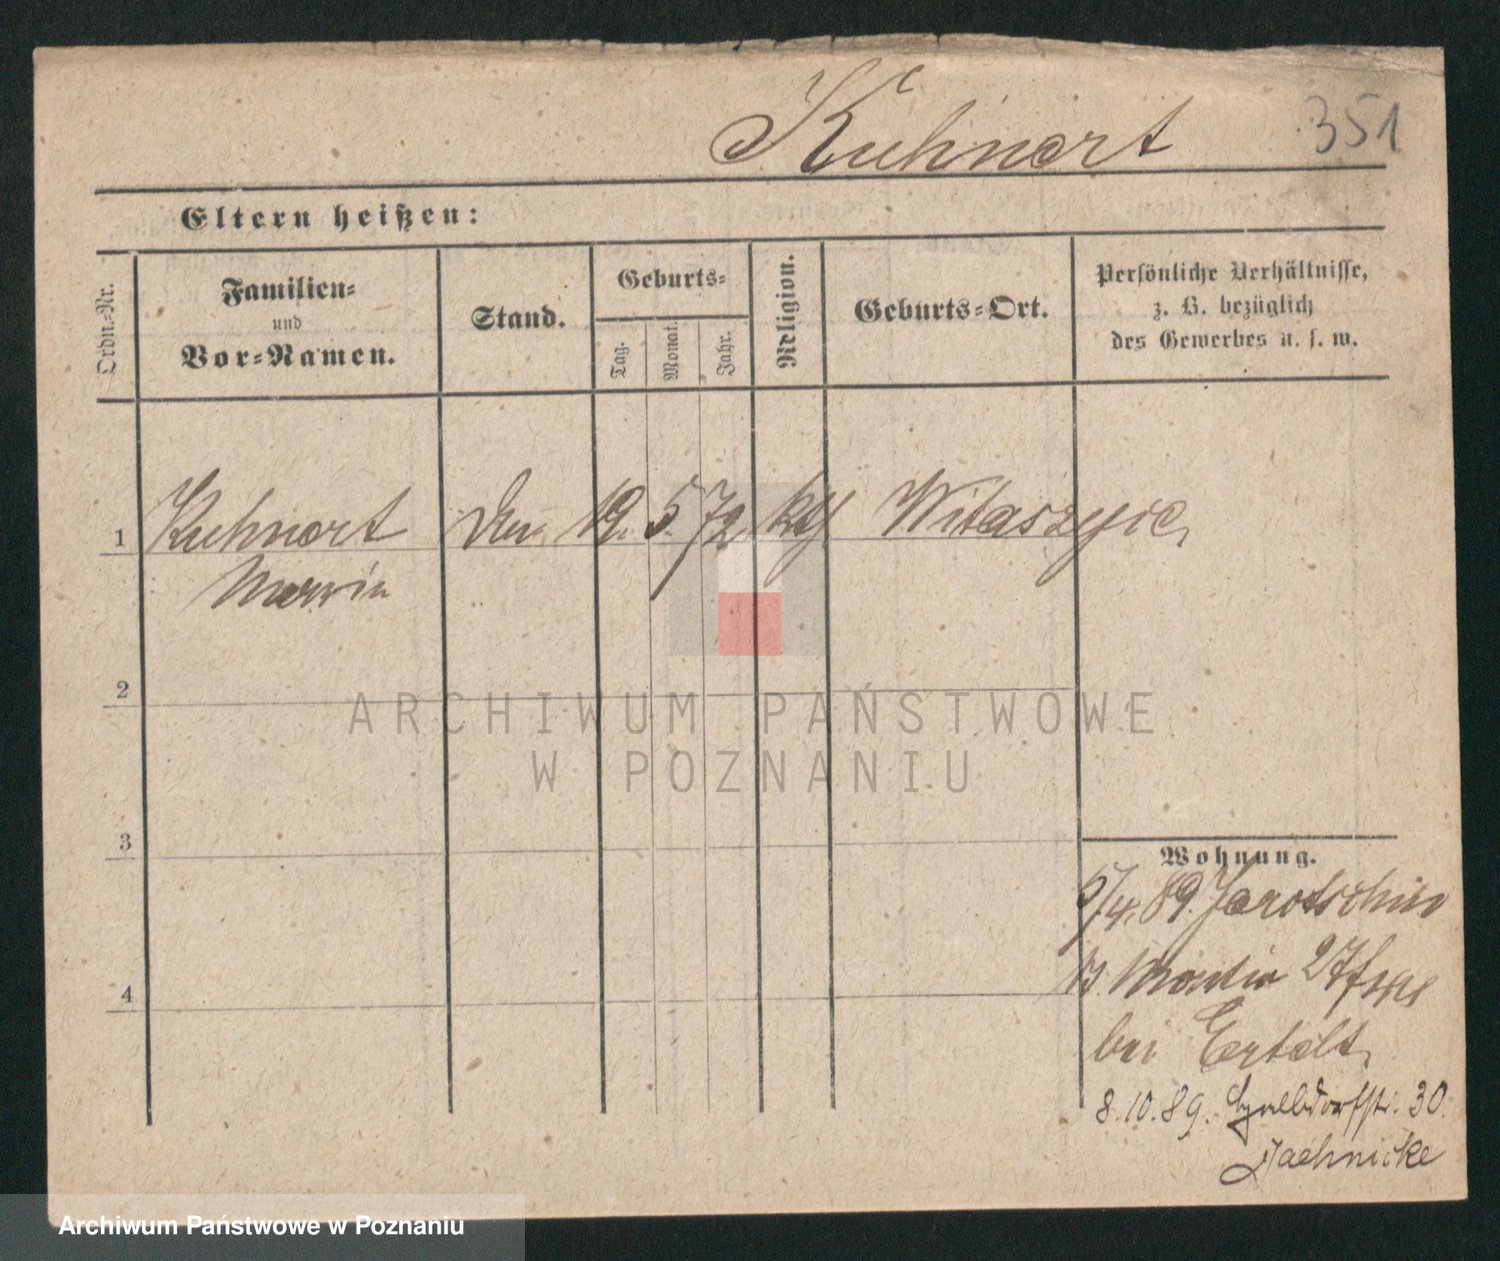 Kuhnert
351
Eltern heißen:
Ordn.-Nr.
Familien-
und
Vor-Namen.
Stand.
Geburts-
Tag.
Monat.
Jahr.
Religion.
Geburts-Ort.
Persönliche Verhältnisse,
z. B. bezüglich
des Gewerbes u. s. w.
1 Kuhnert 19. 5. 72 kth Witaszyce
2
3
4
Wohnung.
/4. 89. Jarotschin
St. Martin 27
bei Ertelt,
8.10.89. 30.
Jaehnicke
ARCHIWUM PAŃSTWOWE
W POZNANIU
Archiwum Państwowe w Poznaniu